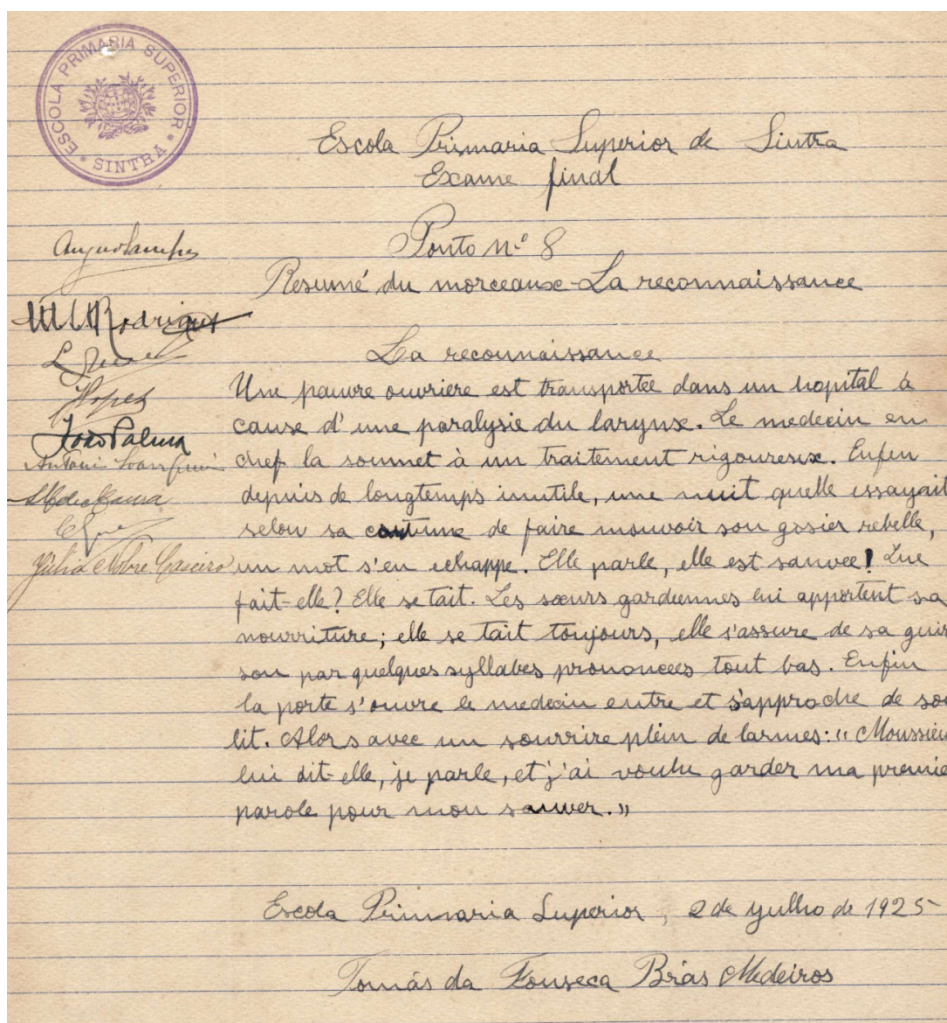 ESCOLA PRIMARIA SUPERIOR
• SINTRA •
Escola Primaria Superior de Sintra
Exame final
Ponto nº 8
Resumé du morceaux - La reconnaissance
Rodrigues
Lopes
João Palma
Julia Nobre
La reconnaissance
Une pauvre ouvriere est transportée dans un hopital à
cause d'une paralysie du larynx. Le medecin en
chef la soumet à un traitement rigoureux. Enfin
depuis de longtemps inutile, une nuit quelle essayait
selon sa coutume de faire mouvoir son gosier rebelle,
un mot s'en echappe. Elle parle, elle est sauvee! Que
fait-elle? Elle se tait. Les sœurs gardiennes lui apportent sa
nourriture; elle se tait toujours, elle s'assure de sa guiri
son par quelques syllabes prononcees tout bas. Enfin
la porte s'ouvre le medecin entre et s'approche de son
lit. Alors avec un sourrire plein de larmes: "Moussieu
lui dit-elle, je parle, et j'ai voulu garder ma premie
parole pour mon sauver."
Escola Primaria Superior, 2 de yulho de 1925
Tomás da Fonseca Brás Medeiros